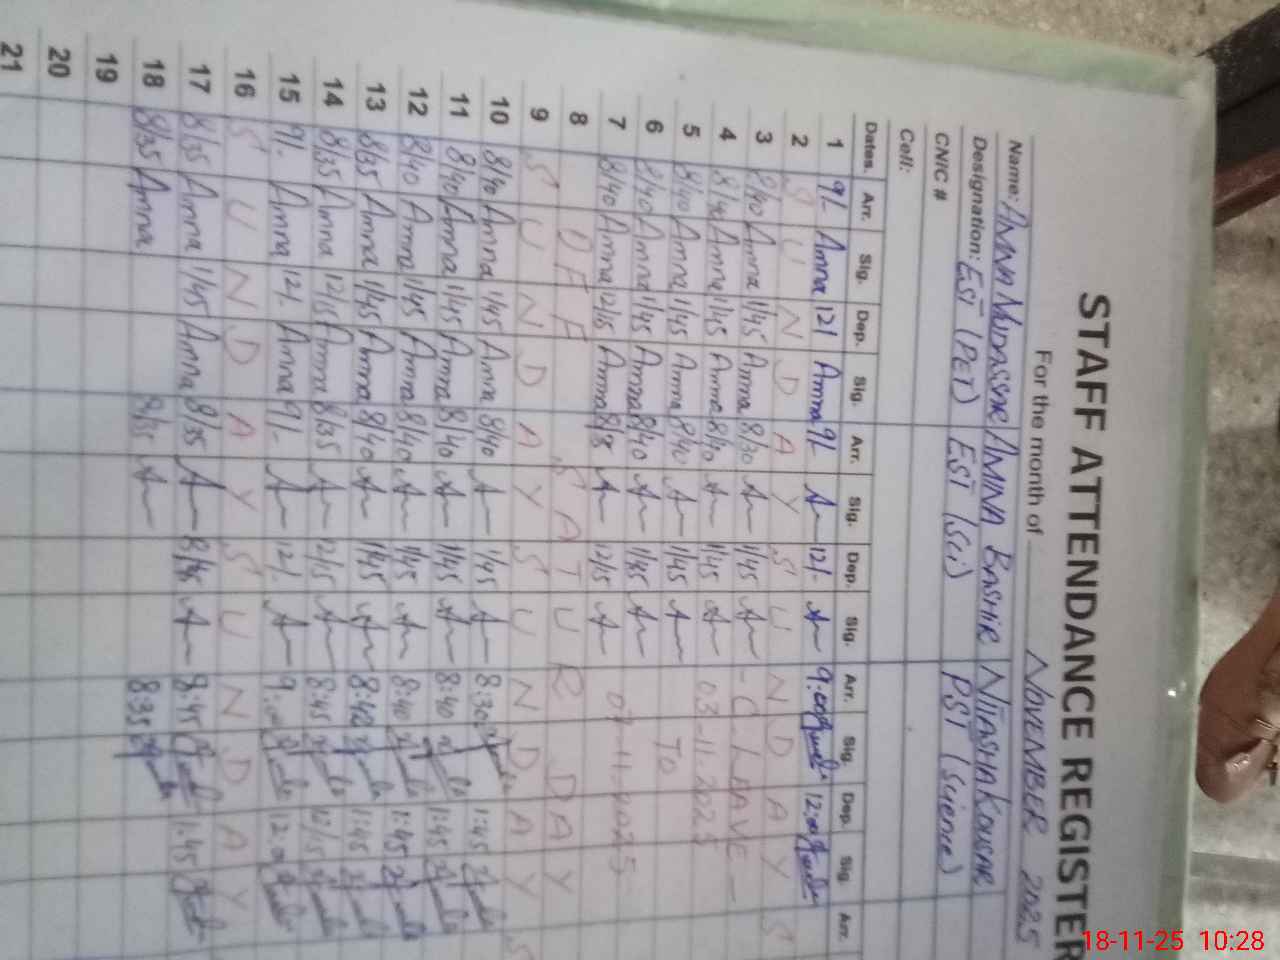 STAFF ATTENDANCE REGISTER
For the month of NOVEMBER 2025
Name: AMNA MUDASSAR AMINA BASHIR NTASHA KOUSAR
Designation: EST (PET) EST (Sci) PST (Science)
CNIC #
Cell:
Dates. Arr. Sig. Dep. Sig. Arr. Sig. Dep. Sig. Arr. Sig. Dep. Sig. Arr.
1 9/- Amna 12/ Amna 9/ 12/- 9:00 12:00
2 S U N D A Y S U N D A Y S
3 8/40 Amna 1/45 Amna 8/30 1/45 - C. LEAVE -
4 8/40 Amna 1/45 Amna 8/40 1/45 03-11-2025
5 8/40 Amna 1/45 Amna 8/40 1/45 TO
6 8/40 Amna 1/45 Amna 8/40 1/45
7 8/40 Amna 12/15 Amna 8/35 12/15 07-11-2025
8 OFF SATURDAY
9 S U N D A Y S U N D A Y S
10 8/40 Amna 1/45 Amna 8/40 1/45 8:30 1:45
11 8/40 Amna 1/45 Amna 8/40 1/45 8:40 1:45
12 8/40 Amna 1/45 Amna 8/40 1/45 8:40 1:45
13 8/35 Amna 1/45 Amna 8/40 1/45 8:40 1:45
14 8/35 Amna 12/15 Amna 8/35 12/15 8:45 12/15
15 9/- Amna 12/- Amna 9/- 12/- 9:00 12:00
16 S U N D A Y S U N D A Y
17 8/35 Amna 1/45 Amna 8/35 8:45 1:45
18 8/35 Amna 8/35 8:35
19
20
21
18-11-25 10:28